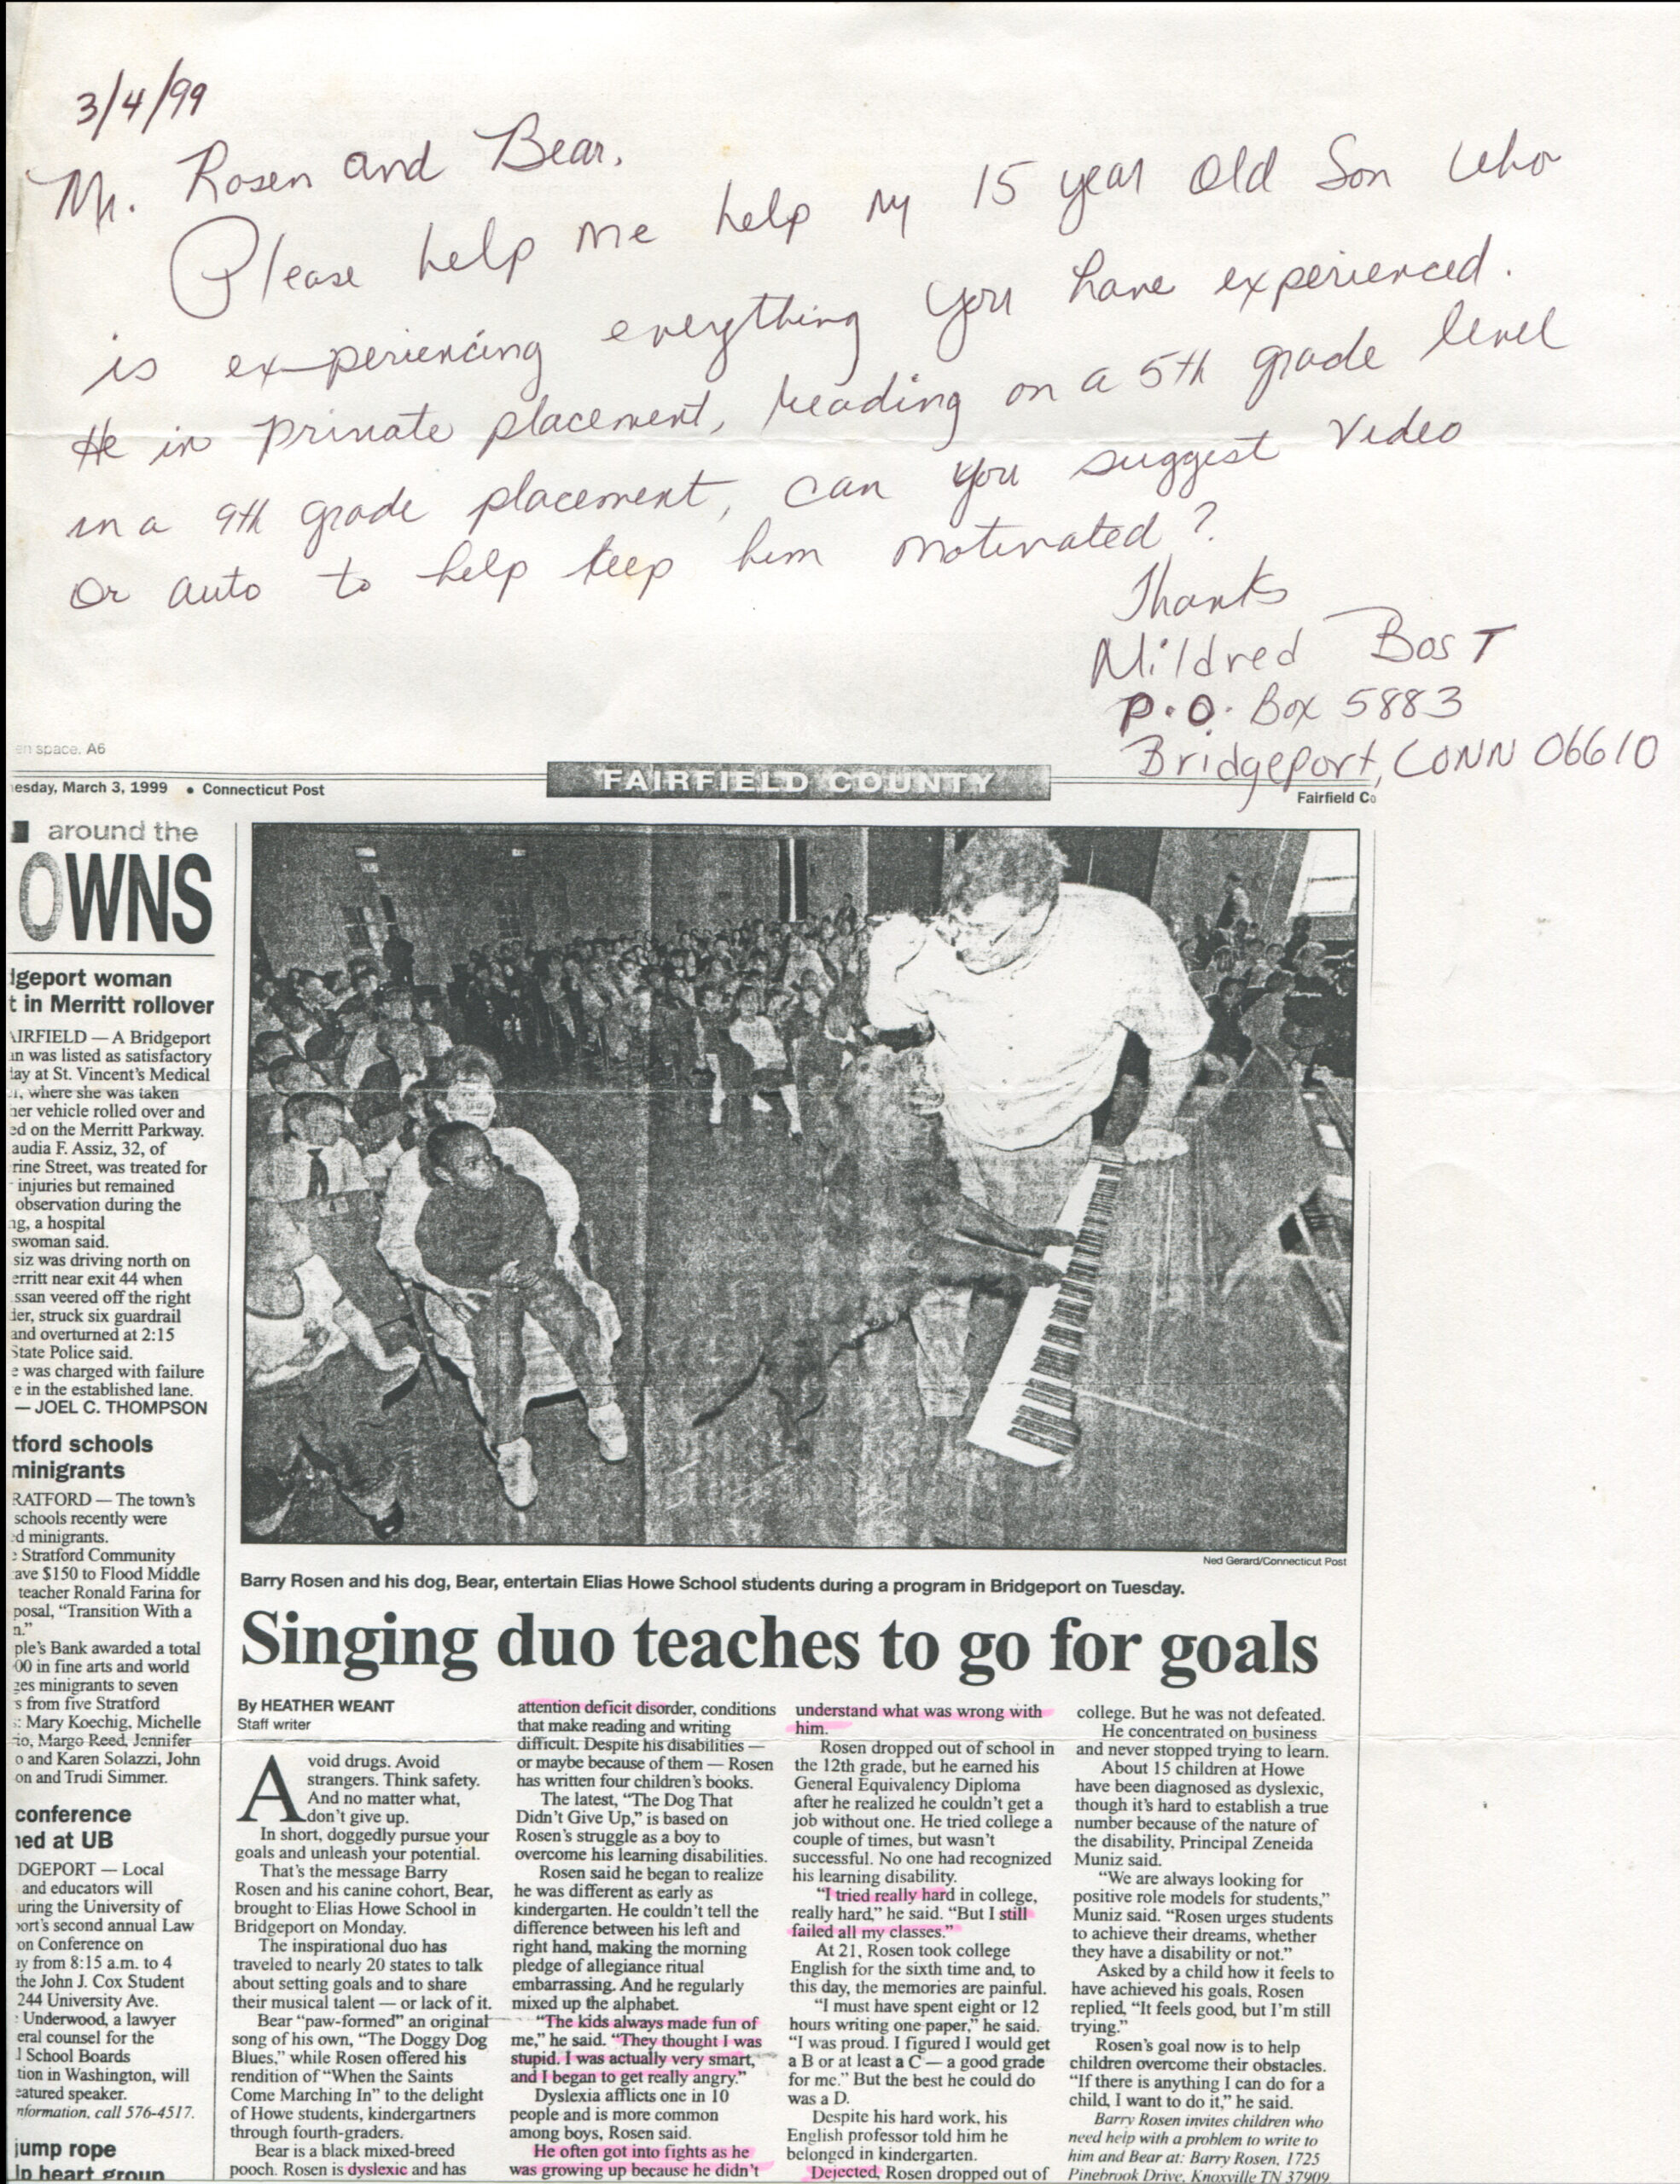 3/4/99
Mr. Rosen and Bear.
Please help me help my 15 year old Son who
is experiencing everything you have experienced.
He in private placement, reading on a 5th grade level
in a 9th grade placement, can you suggest Video
or auto to help keep him motivated?
Thanks
Mildred Bost
P.O. Box 5883
Bridgeport, CONN 06610
en space. A6
esday, March 3, 1999 • Connecticut Post
FAIRFIELD COUNTY
Fairfield Co
around the
OWNS
dgeport woman
t in Merritt rollover
AIRFIELD — A Bridgeport
an was listed as satisfactory
day at St. Vincent's Medical
r, where she was taken
her vehicle rolled over and
ed on the Merritt Parkway.
audia F. Assiz, 32, of
rine Street, was treated for
injuries but remained
observation during the
ng, a hospital
swoman said.
siz was driving north on
erritt near exit 44 when
ssan veered off the right
der, struck six guardrail
and overturned at 2:15
State Police said.
e was charged with failure
e in the established lane.
— JOEL C. THOMPSON
tford schools
minigrants
RATFORD — The town's
schools recently were
ed minigrants.
e Stratford Community
ave $150 to Flood Middle
teacher Ronald Farina for
posal, "Transition With a
n."
ple's Bank awarded a total
00 in fine arts and world
ges minigrants to seven
s from five Stratford
: Mary Koechig, Michelle
io, Margo Reed, Jennifer
o and Karen Solazzi, John
on and Trudi Simmer.
conference
ned at UB
DGEPORT — Local
and educators will
uring the University of
port's second annual Law
on Conference on
ay from 8:15 a.m. to 4
the John J. Cox Student
244 University Ave.
Underwood, a lawyer
eral counsel for the
l School Boards
tion in Washington, will
eatured speaker.
nformation, call 576-4517.
jump rope
lp heart group
Ned Gerard/Connecticut Post
Barry Rosen and his dog, Bear, entertain Elias Howe School students during a program in Bridgeport on Tuesday.
Singing duo teaches to go for goals
By HEATHER WEANT
Staff writer
Avoid drugs. Avoid
strangers. Think safety.
And no matter what,
don't give up.
In short, doggedly pursue your
goals and unleash your potential.
That's the message Barry
Rosen and his canine cohort, Bear,
brought to Elias Howe School in
Bridgeport on Monday.
The inspirational duo has
traveled to nearly 20 states to talk
about setting goals and to share
their musical talent — or lack of it.
Bear "paw-formed" an original
song of his own, "The Doggy Dog
Blues," while Rosen offered his
rendition of "When the Saints
Come Marching In" to the delight
of Howe students, kindergartners
through fourth-graders.
Bear is a black mixed-breed
pooch. Rosen is dyslexic and has
attention deficit disorder, conditions
that make reading and writing
difficult. Despite his disabilities —
or maybe because of them — Rosen
has written four children's books.
The latest, "The Dog That
Didn't Give Up," is based on
Rosen's struggle as a boy to
overcome his learning disabilities.
Rosen said he began to realize
he was different as early as
kindergarten. He couldn't tell the
difference between his left and
right hand, making the morning
pledge of allegiance ritual
embarrassing. And he regularly
mixed up the alphabet.
"The kids always made fun of
me," he said. "They thought I was
stupid. I was actually very smart,
and I began to get really angry."
Dyslexia afflicts one in 10
people and is more common
among boys, Rosen said.
He often got into fights as he
was growing up because he didn't
understand what was wrong with
him.
Rosen dropped out of school in
the 12th grade, but he earned his
General Equivalency Diploma
after he realized he couldn't get a
job without one. He tried college a
couple of times, but wasn't
successful. No one had recognized
his learning disability.
"I tried really hard in college,
really hard," he said. "But I still
failed all my classes."
At 21, Rosen took college
English for the sixth time and, to
this day, the memories are painful.
"I must have spent eight or 12
hours writing one paper," he said.
"I was proud. I figured I would get
a B or at least a C — a good grade
for me." But the best he could do
was a D.
Despite his hard work, his
English professor told him he
belonged in kindergarten.
Dejected, Rosen dropped out of
college. But he was not defeated.
He concentrated on business
and never stopped trying to learn.
About 15 children at Howe
have been diagnosed as dyslexic,
though it's hard to establish a true
number because of the nature of
the disability, Principal Zeneida
Muniz said.
"We are always looking for
positive role models for students,"
Muniz said. "Rosen urges students
to achieve their dreams, whether
they have a disability or not."
Asked by a child how it feels to
have achieved his goals, Rosen
replied, "It feels good, but I'm still
trying."
Rosen's goal now is to help
children overcome their obstacles.
"If there is anything I can do for a
child, I want to do it," he said.
Barry Rosen invites children who
need help with a problem to write to
him and Bear at: Barry Rosen, 1725
Pinebrook Drive, Knoxville TN 37909